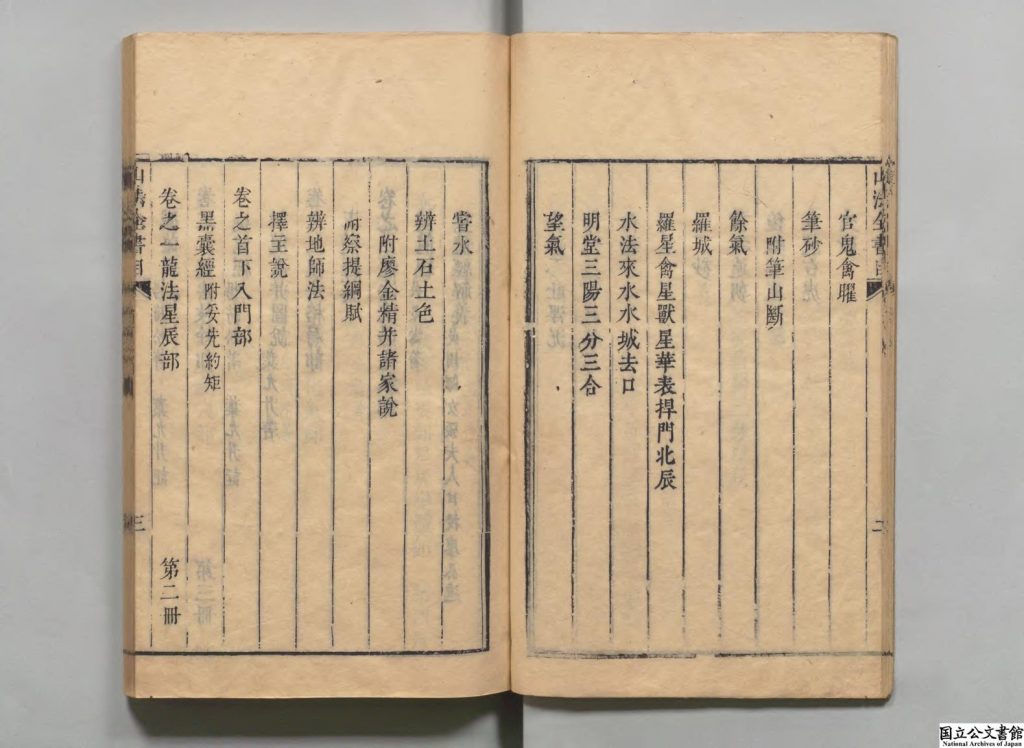 官鬼禽曜
筆砂
附筆山斷
餘氣
羅城
羅星禽星獸星華表捍門北辰
水法來水水城去口
明堂三陽三分三合
望氣
山法全書目
二
嘗水
辨土石土色
附廖金精并諸家說
附察提綱賦
辨地師法
擇主說
卷之首下入門部
黑囊經附安先約矩
卷之一龍法星辰部 第二冊
山法全書目
三
国立公文書館
National Archives of Japan